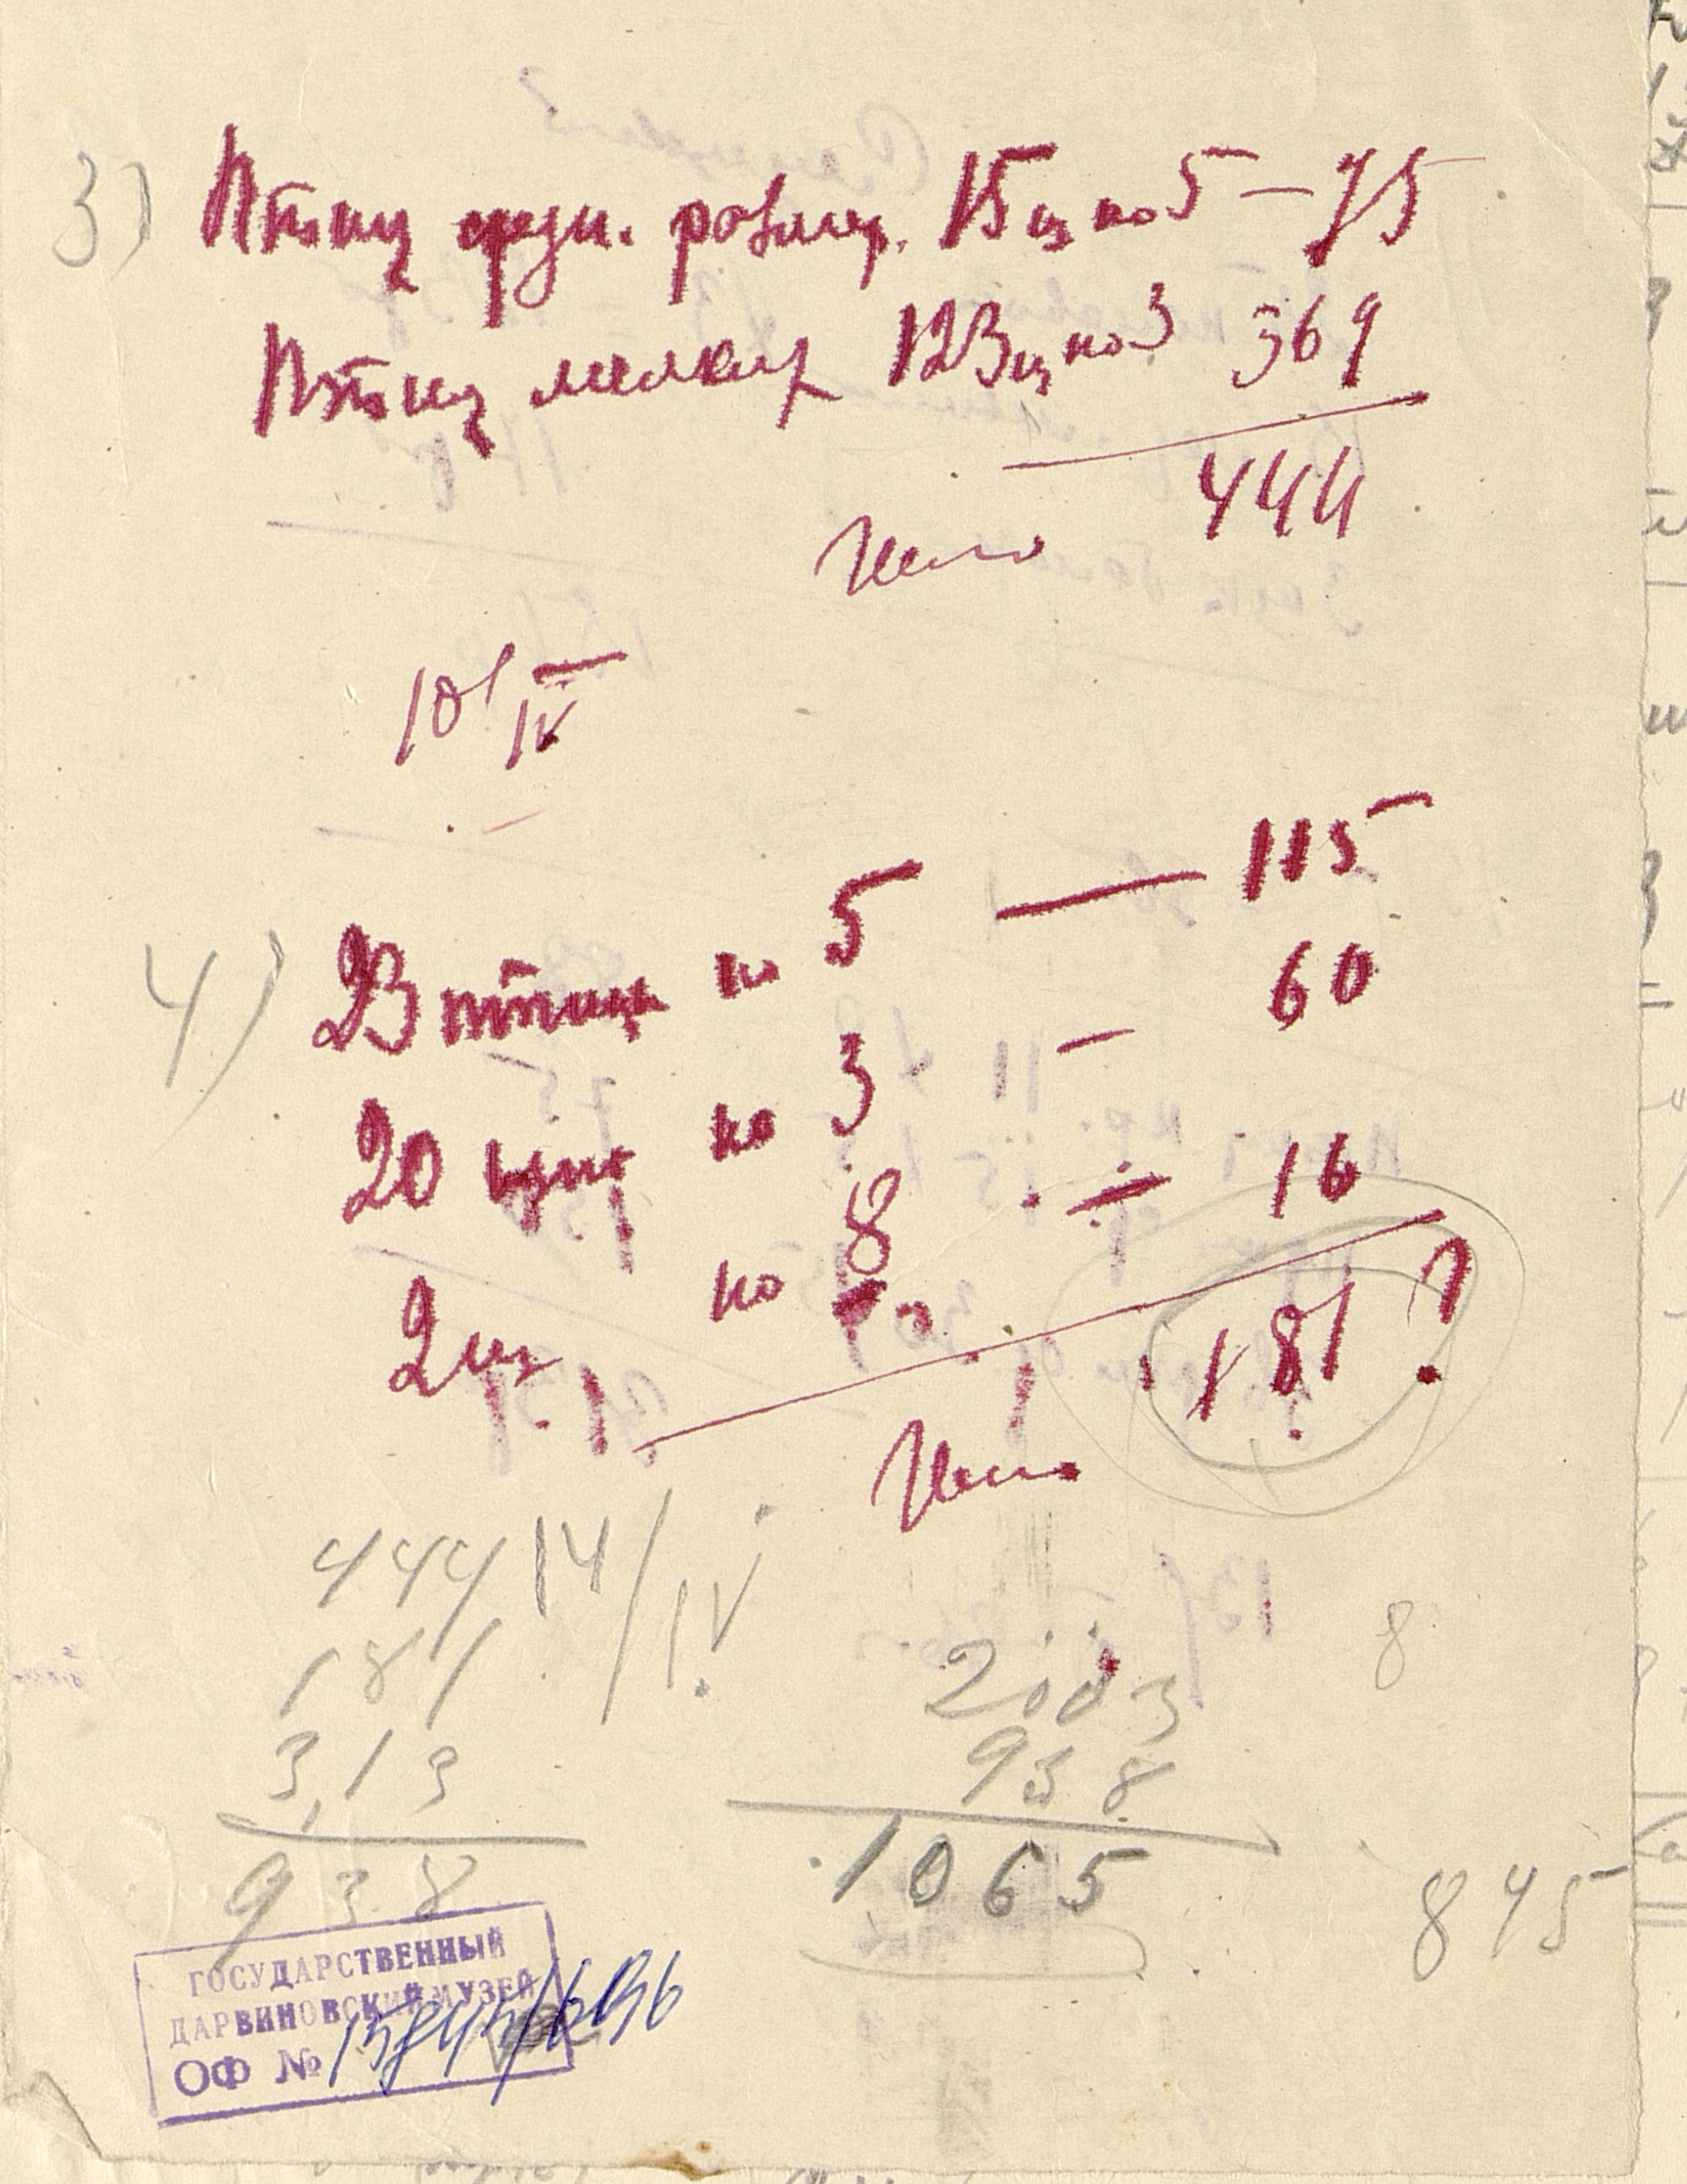 3) Птиц средн. размер. 15 шт по 5 — 75
Птиц мелких 123 шт по 3 369
444
10/IV
4) 23 птицы по 5 — 115
20 птиц по 3 — 60
2 шт по 8 — 16
181 ?
444 14/IV
181
313
938
2003
938
1065
8
845
ГОСУДАРСТВЕННЫЙ
ДАРВИНОВСКИЙ МУЗЕЙ
ОФ №